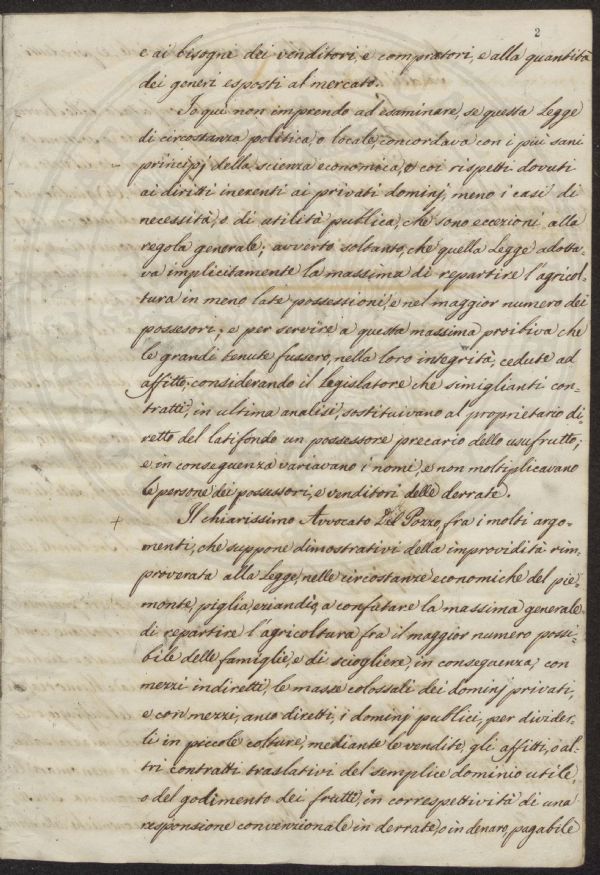 2
e ai bisogni dei venditori, e compratori, e alla quantità
dei generi esposti al mercato.
Io qui non imprendo ad esaminare, se questa Legge
di circostanza politica, o locale, concordava con i più sani
principj della scienza economica, o coi rispetti dovuti
ai diritti inerenti ai privati dominj, meno i casi di
necessità, o di utilità publica, che sono eccezioni alla
regola generale; avverto soltanto, che quella Legge adotta-
va implicitamente la massima di repartire l'agricol-
tura in meno late possessioni, e nel maggior numero dei
possessori; e per servire a questa massima proibiva che
le grandi tenute fussero, nella loro integrità, cedute ad
affitto; considerando il legislatore che simiglianti con-
tratti, in ultima analisi, sostituivano al proprietario di-
retto del latifondo un possessore precario dello usufrutto;
e in conseguenza variavano i nomi, e non moltiplicavano
le persone dei possessori, e venditori delle derrate.
+ Il chiarissimo Avvocato Del Pozzo, fra i molti argo-
menti, che suppone dimostrativi della improvidità rim-
proverata alla Legge, nelle circostanze economiche del pie-
monte, piglia, eziandio, a confutare la massima generale
di repartire l'agricoltura fra il maggior numero possi-
bile delle famiglie, e di sciogliere, in conseguenza, con
mezzi indiretti, le masse colossali dei dominj privati,
e con mezzi, anco diretti, i dominj publici, per divider-
li in piccole colture, mediante le vendite, gli affitti, o al-
tri contratti traslativi del semplice dominio utile,
o del godimento dei frutti, in correspettività di una
responsione convenzionale in derrate, o in denaro, pagabile